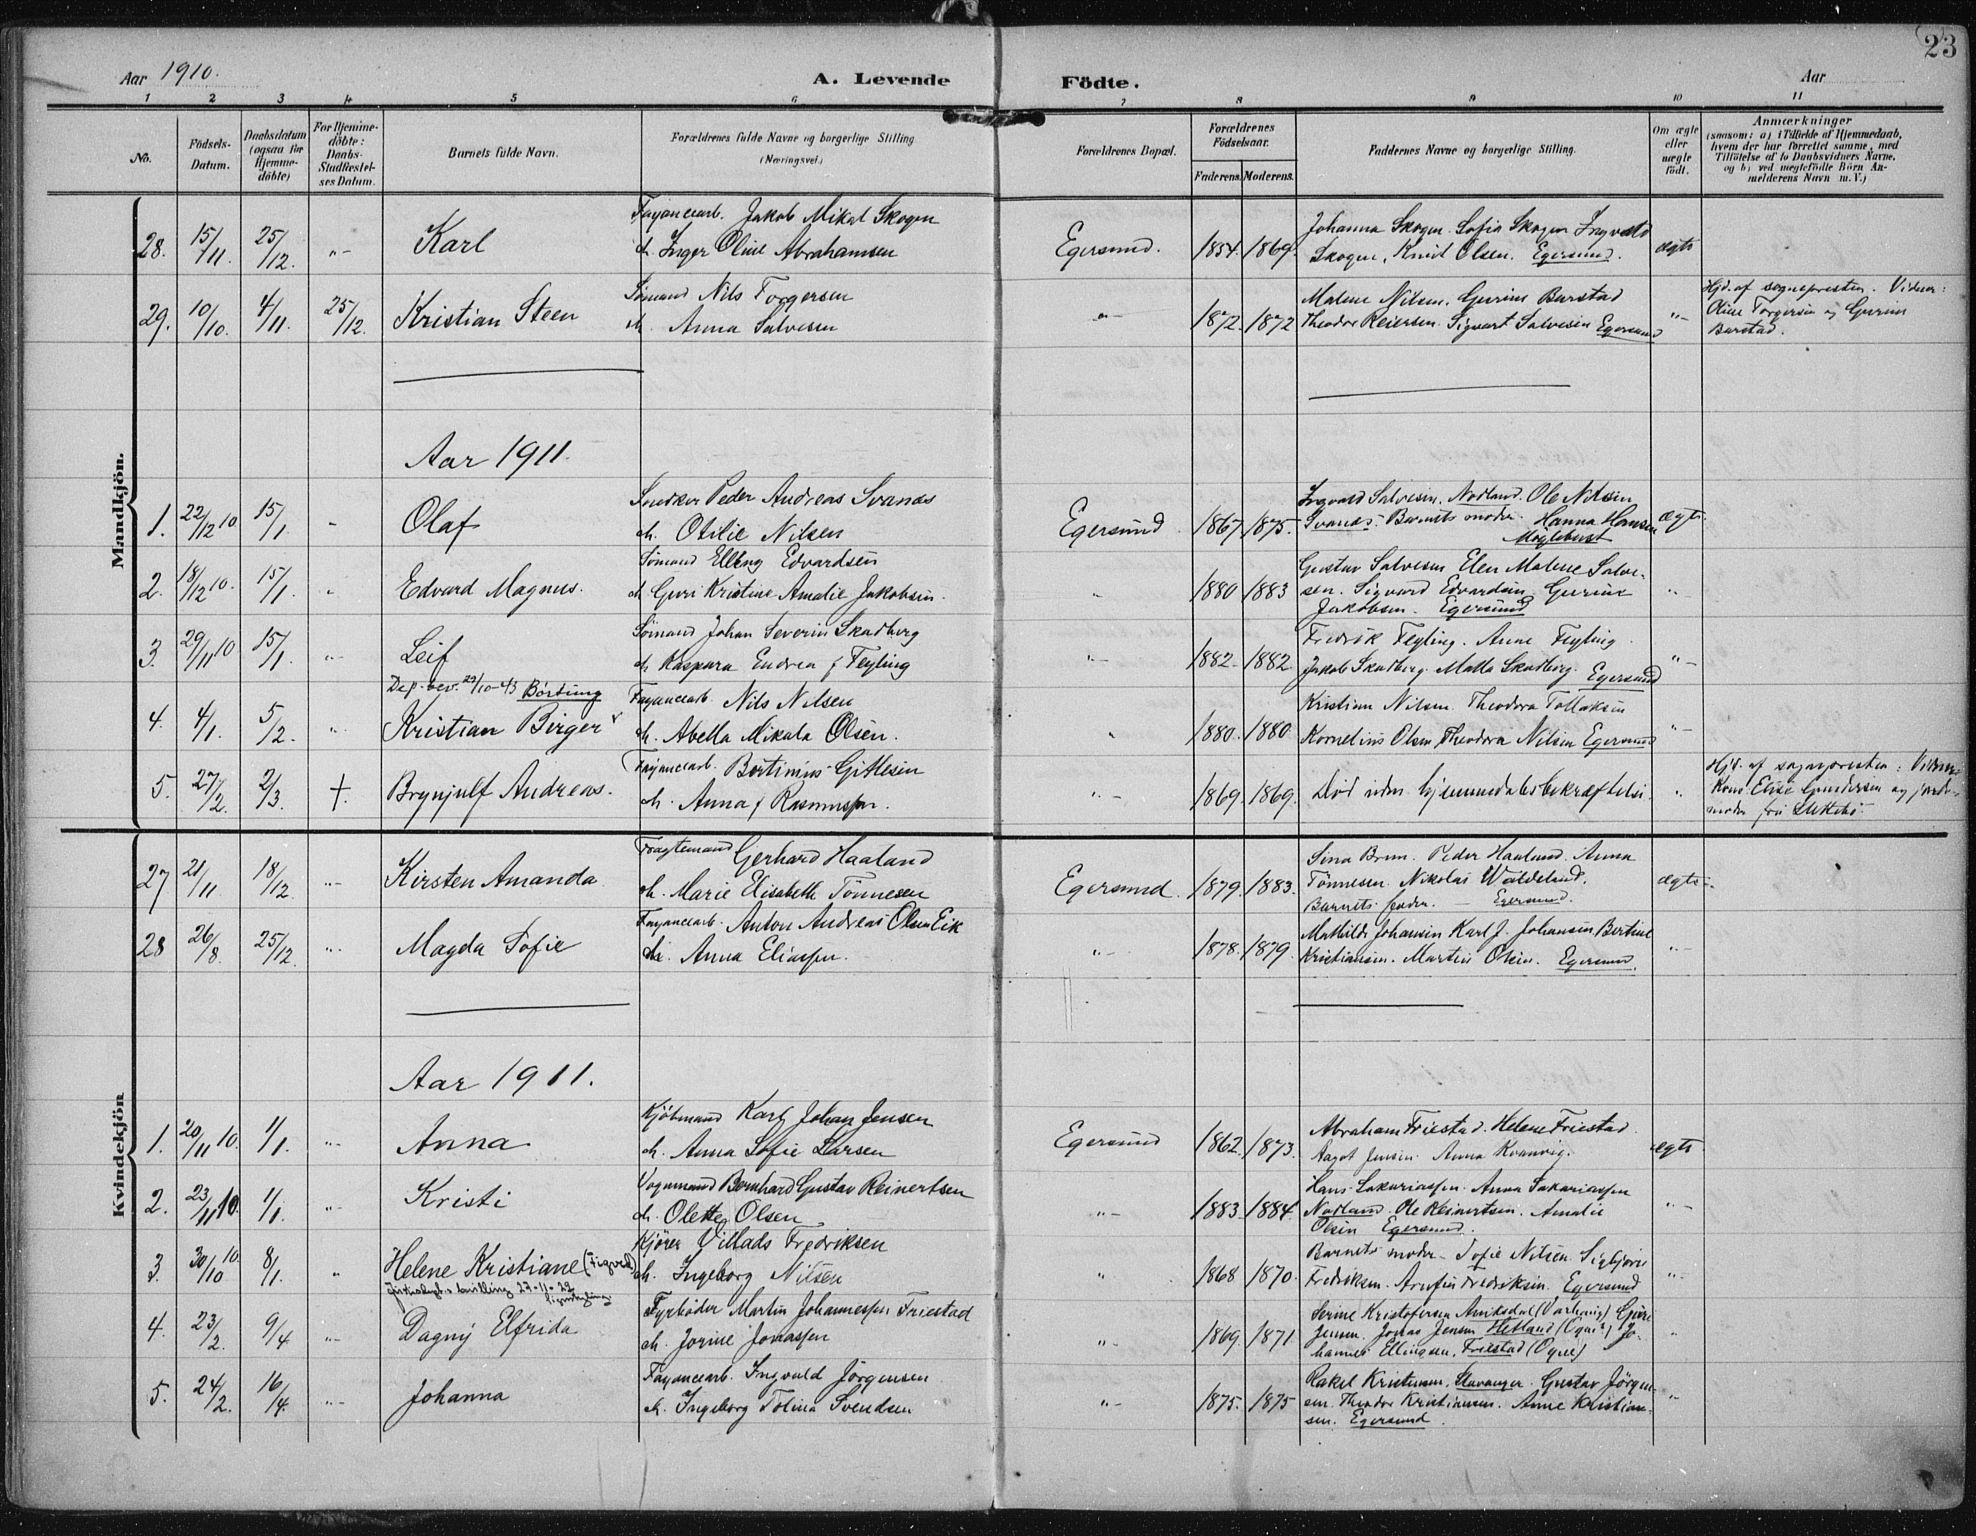 23
Aar 1910.
A. Levende Födte.
Aar
1 2 3 4 5 6 7 8 9 10 11
No.
Födsels-Datum.
Daabsdatum (ogsaa for Hjemme-döbte)
For Hjemme-döbte: Daabs-Stadfæstel-ses Datum.
Barnets fulde Navn.
Forældrenes fulde Navne og borgerlige Stilling (Næringsvei.)
Forældrenes Bopæl.
Forældrenes Födselsaar.
Faderens. Moderens.
Faddernes Navne og borgerlige Stilling.
Om ægte eller uægte födt.
Anmærkninger
(saasom: a) i Tilfælde af Hjemmedaab, hvem der har forrettet samme, med Tilföielse af to Daabsvidners Navne, og b) ved uægtefödte Börn An-melderens Navn m. V.)
Mandkjön.
28. 15/11. 25/12. "- Karl
Fayancearb. Jakob Mikal Skogen
& Inger Oline Abrahamsen
Egersund. 1854. 1869.
Johanna Skogen. Sofia Skogen Ingvald
Skogen, Knut Olsen. Egersund.
ægte
29. 10/10. 4/11. 25/12. Kristian Steen
Sømand Nils Torgersen
& Anna Salvesen
"- 1872. 1872
Malene Nilsen. Gurine Barstad
Theodor Reiersen. Sigvart Salvesen Egersund
"-
Hjd. af sognepresten. Vidner:
Oline Torgersen og Gurine
Barstad.
Aar 1911.
1. 22/12 10 15/1. - Olaf
Snedker Peder Andreas Svanæs
& Otilie Nilsen
Egersund 1867. 1875.
Ingvald Salvesen, Nodland. Ole Nilsen
Svanæs. Barnets moder. Hanna Hansen
ægte
2. 18/12 10. 15/1. Edvard Magnus.
Sømand Elling Edvardsen
& Guri Kristine Amalie Jakobsen.
" 1880 1883
Gustav Salvesen Elen Malene Salve-
sen. Sigvard Edvardsen Gurine
Jakobsen. Egersund
"-
3. 29/11 10 15/1. "- Leif
Sømand Johan Severin Skadberg
& Kaspara Endrea f Feyling
"- 1882. 1882.
Fredrik Feyling. Anne Feyling.
Jakob Skadberg. Malla Skadberg. Egersund
"-
Dep. bev. 29/10-43 Børtung
4. 4/1. 5/2. "- Kristian Birger
Fayancearb. Nils Nilsen
& Abella Mikala Olsen.
" 1880. 1880
Kristian Nilsen. Theodora Tollaksen
Kornelius Olsen, Theodora Nilsen Egersund
"-
5. 27/2. 2/3. +. Brynjulf Andreas.
Fayancearb. Bertinius Gitlesen
& Anna f Rasmussen.
"- 1869. 1869.
Död uden hjemmedaabsbekræftelse.
"
Hjd. af sognepresten: Vidner
Kone Elise Gundersen og jorde-
moder
Kvindekjön
27 21/11. 18/12. "- Kirsten Amanda
Fragtemand Gerhard Haaland
& Marie Elisabeth Tönnesen
Egersund. 1879. 1883.
Sina Brun. Peder Haaland. Anna
Tönnesen. Nikolai Waldeland.
Barnets fader. - Egersund.
ægte
28 26/8. 25/12. "- Magda Sofie
Fayancearb. Anton Andreas Olsen Eik
& Anna Eliassen.
"- 1878. 1879.
Mathilde Johansen Karl J. Johansen Bertine
Kristiansen. Martin Olsen. Egersund.
"-
Aar 1911.
1. 20/11 10. 1/1. "- Anna
Kjøbmand Karl Johan Jensen
& Anna Sofie Larsen
Egersund 1862. 1873.
Abraham Friestad. Helene Friestad
Aagot Jensen. Anna Kvanvig.
ægte
2. 23/11 10. 1/1. "- Kristi
Vognmand Bernhard Gustav Reinertsen
& Olette Olsen
"- 1883. 1884.
Hans Sakariassen. Anna Sakariassen
Nodland. Ole Reinertsen. Amalie
Olsen Egersund.
"-
3. 30/10 10. 8/1. " Helene Kristiane (Sigved)
Kjører Villads Fredriksen
& Ingeborg Nilsen
" 1868 1870.
Barnets moder - Sofie Nilsen Sigbjörn
Fredriksen. Arnfin Fredriksen. Egersund
"-
4. 23/2. 9/4 "- Dagny Elfrida
Fyrbøder Martin Johannessen Friestad
& Jorine Jonassen
"- 1869. 1871
Serine Kristofersen Aniksdal (Varhaug) Gine
Jensen. Jonas Jensen Hetland (Ogne) Jo-
hannes Ellingsen, Friestad (Ogne)
"
5. 24/2. 16/4. "- Johanna
Fayancearb. Ingvald Jörgensen
& Ingeborg Tolina Svendsen
"- 1875. 1875
Rakel Kristensen, Stavanger. Gustav Jörgen-
sen. Theodor Kristiansen. Anne Kristian-
sen. Egersund.
"